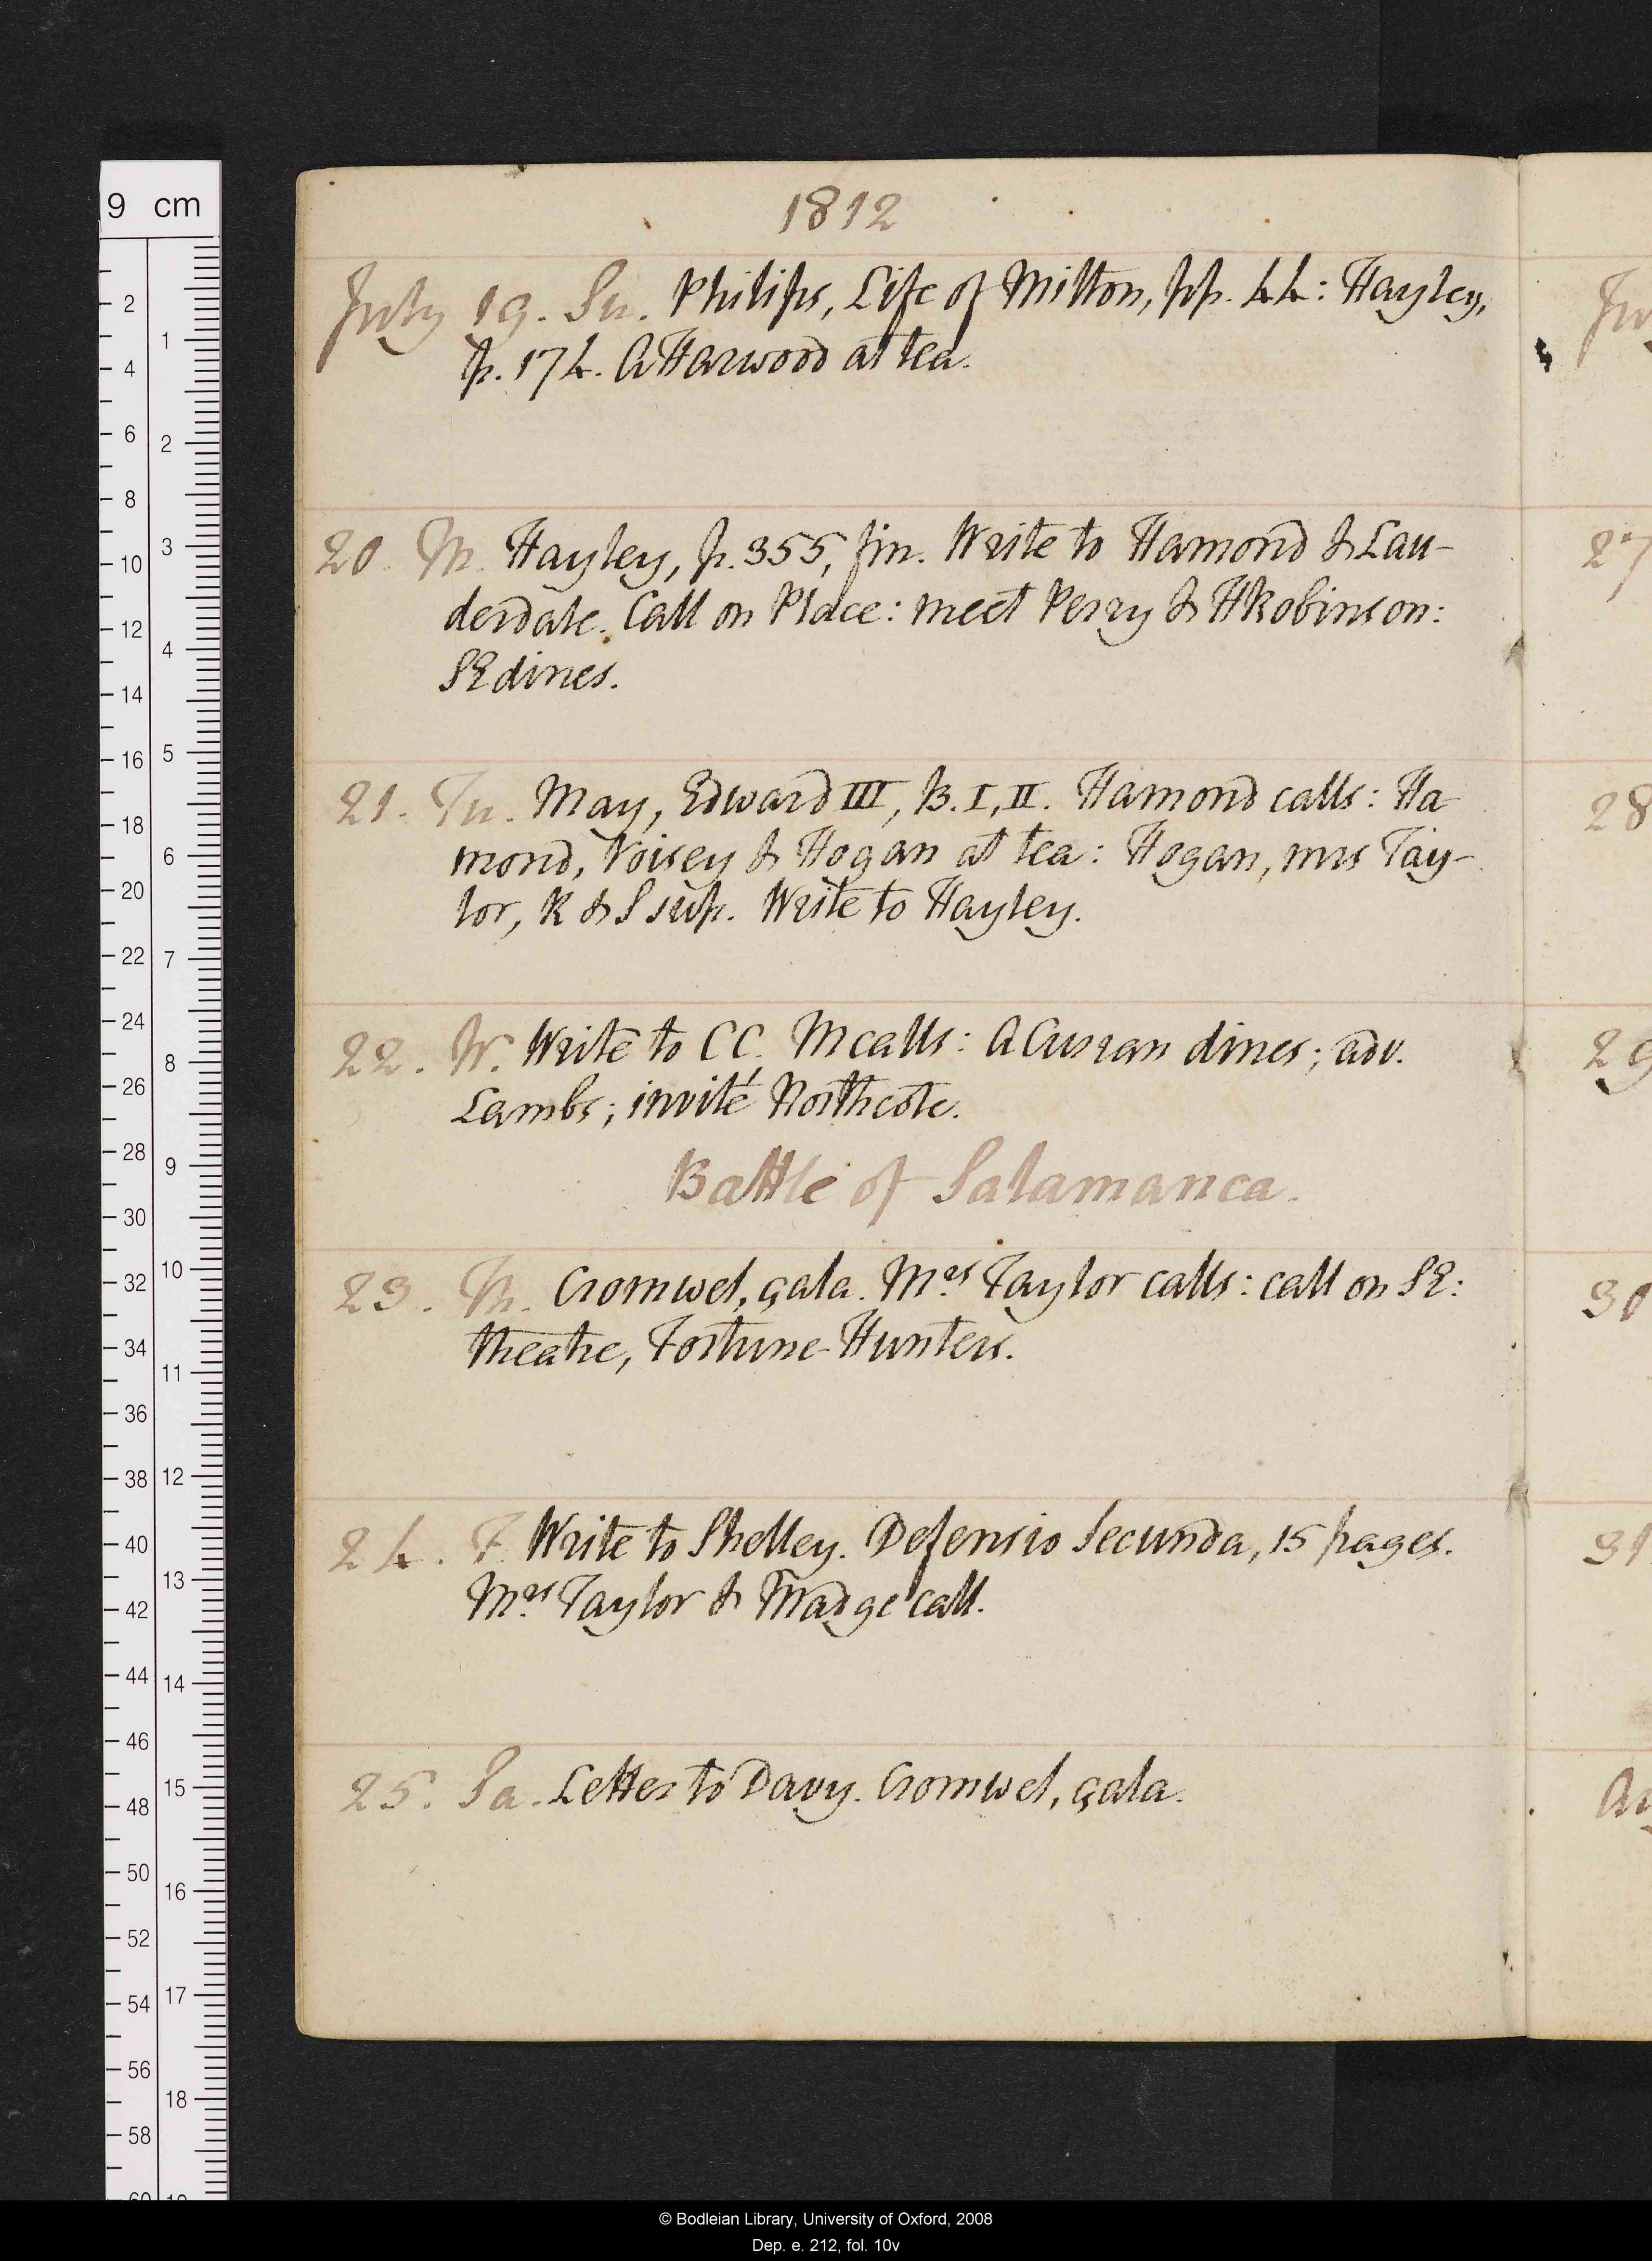 1812
July 19. Su. Philips, Life of Milton, pp. 44: Hayley,
p. 174. A Harwood at tea.
20. M. Hayley, p. 355, fin. Write to Hamond & Lau-
derdale. Call on Place: meet Perry & H Robinson:
SE dines.
21. Tu. May, Edward III, B. I, II. Hamond calls: Ha-
mond, Voisey & Hogan at tea: Hogan, mrs Tay-
lor, K & S sup. Write to Hayley.
22. W. Write to CC. M calls: A Curran dines; adv.
Lambs; invité Northcote.
Battle of Salamanca.
23. Th. Cromwel, çala. Mrs Taylor calls: call on SE:
theatre, Fortune-Hunters.
24. F. Write to Shelley. Defensio Secunda, 15 pages.
Mrs Taylor & Madge call.
25. Sa. Letter to Davy. Cromwel, çala.
27
28
29
30
31
9 cm
2
4
6
8
10
12
14
16
18
20
22
24
26
28
30
32
34
36
38
40
42
44
46
48
50
52
54
56
58
1
2
3
4
5
6
7
8
9
10
11
12
13
14
15
16
17
18
© Bodleian Library, University of Oxford, 2008
Dep. e. 212, fol. 10v